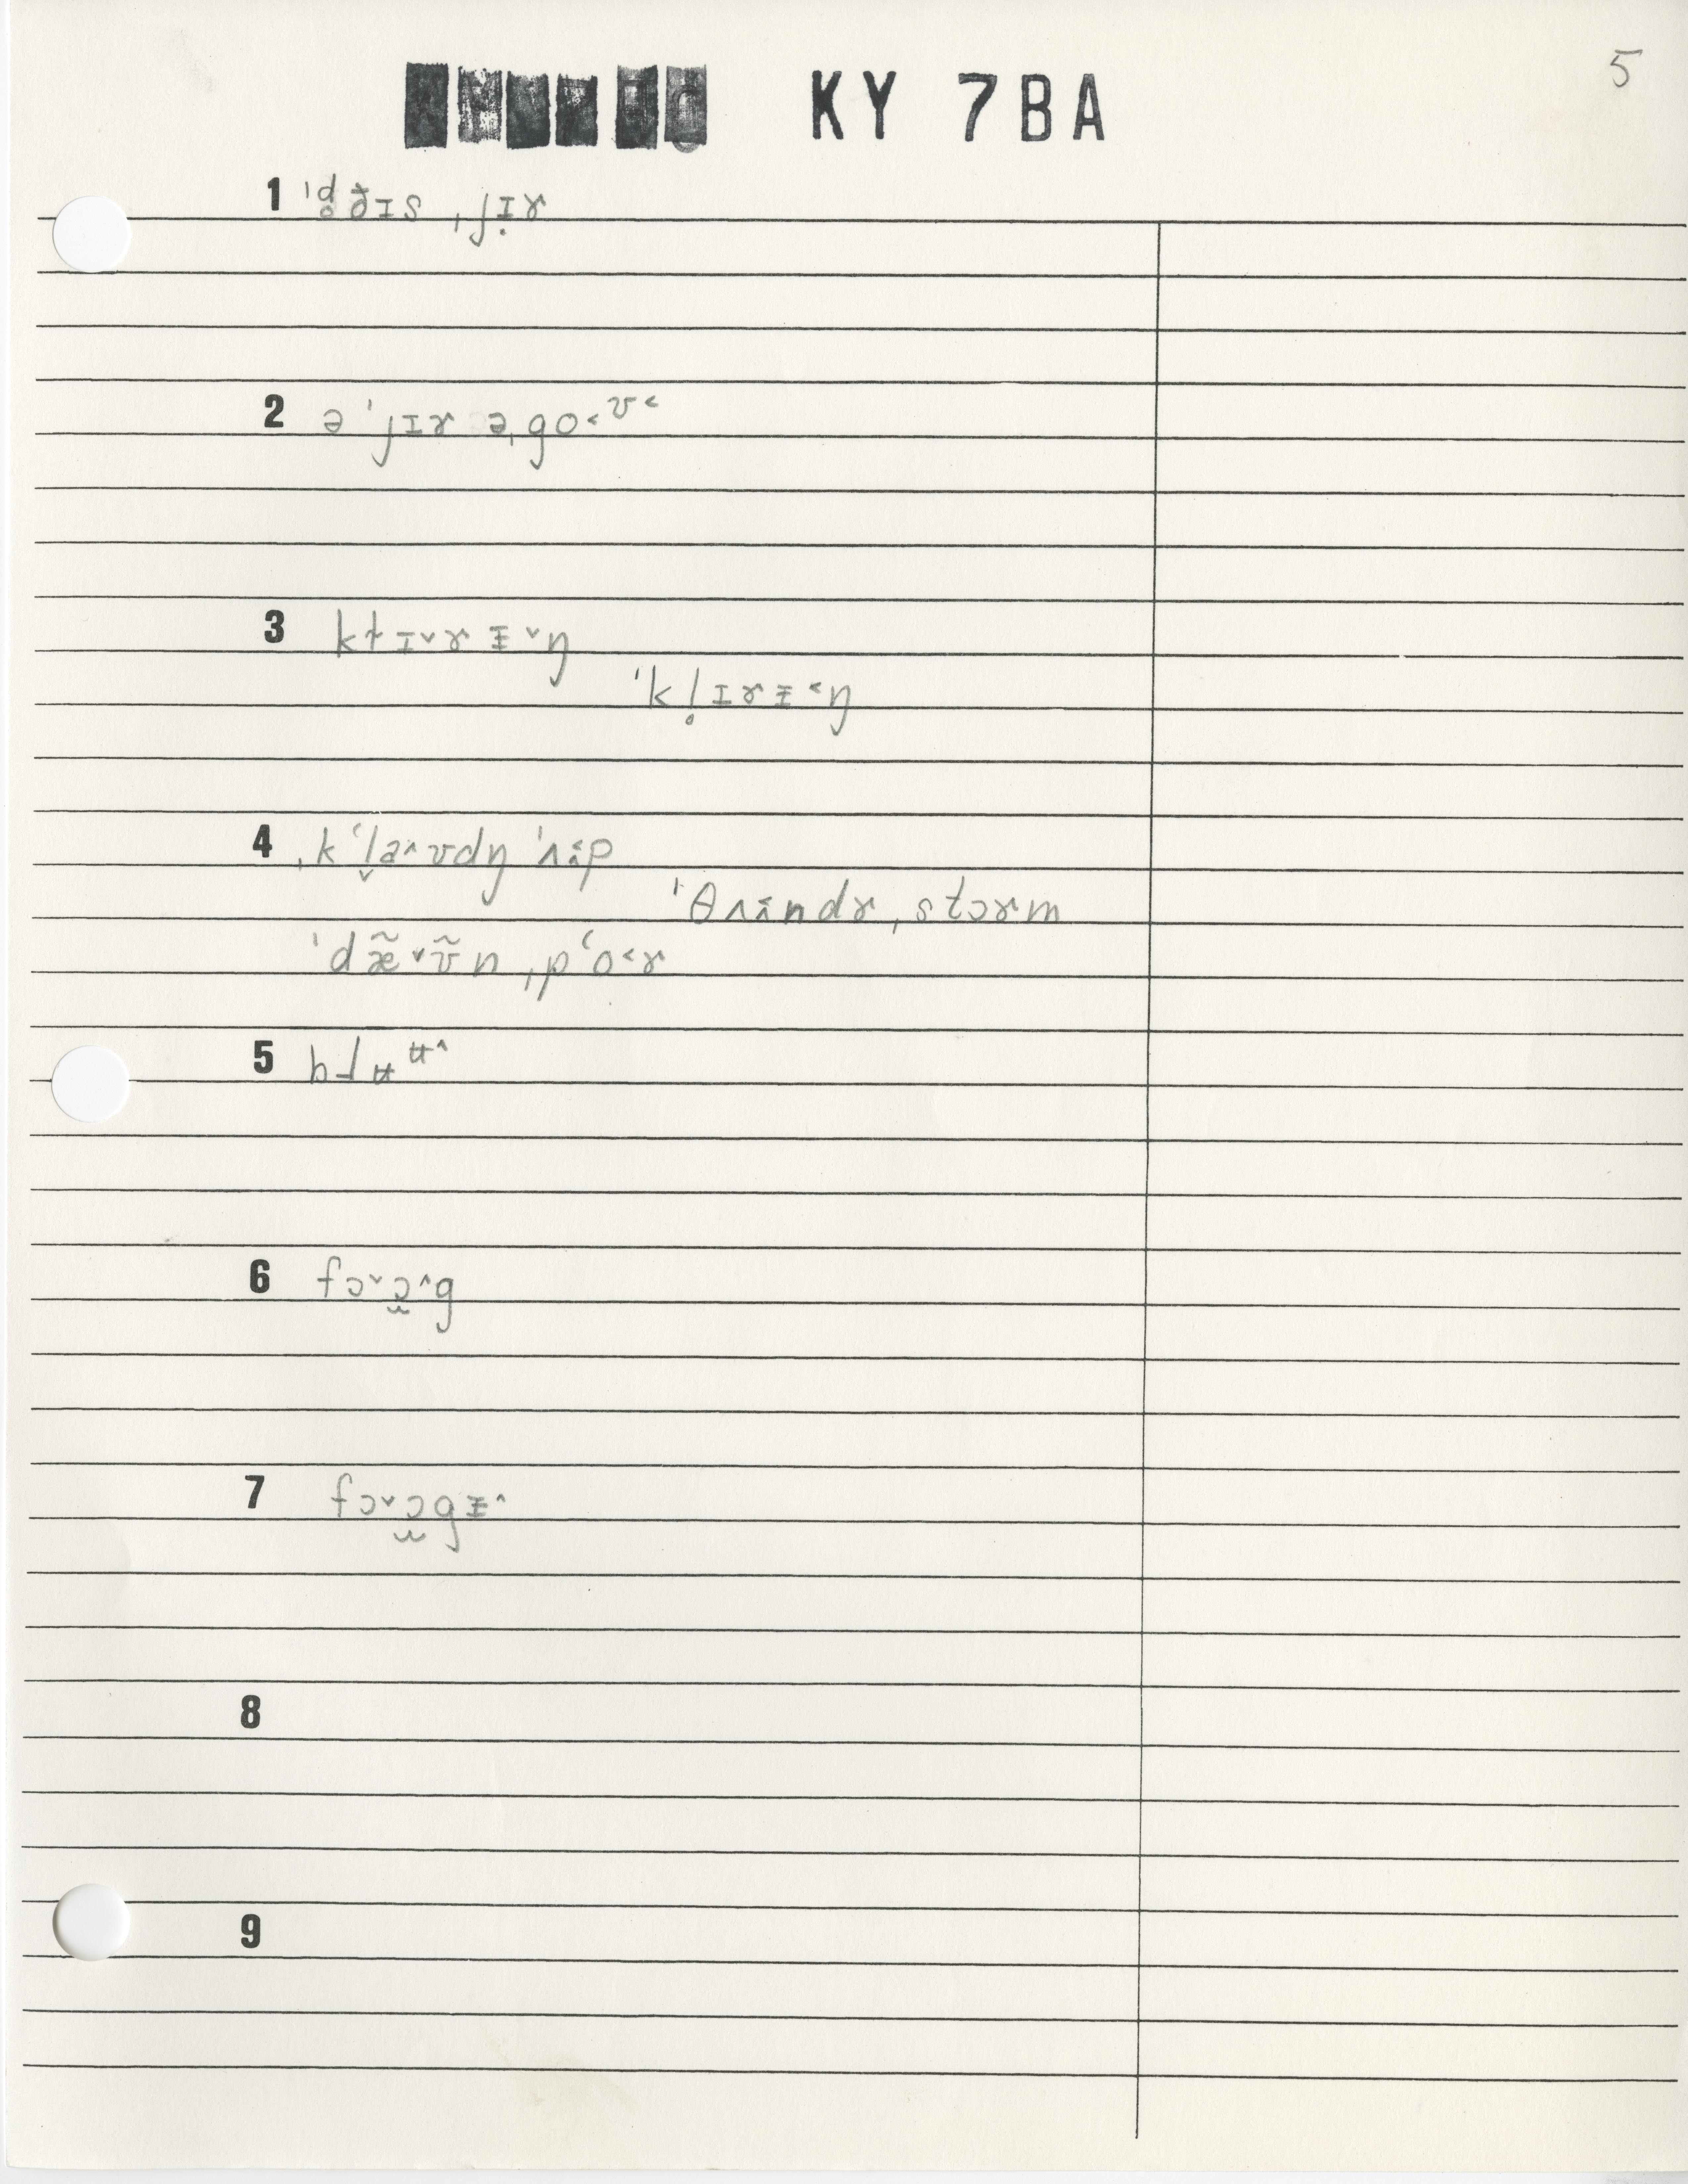 5
KY 7BA
1 ˈd̥ð̞ɪs ˌjɪ̣ɚ
2 ə ˈjɪɚ əˌgo˂ʊ˂
3 kɫɪ˅ɚɪ̵˅ŋ
ˈkl̥ɪɚɪ̵˂ŋ
4 ˌkʻl̬a˄ʊdŋ ˈʌɨ̂p
ˈθʌɨ̂ndɚ ˌstɔɚm
ˈdæ̃˅ʊ̃n ˌpʻo˂ɚ
5 bɫʉʉ˄
6 fɔ˅ɔ̫˄g
7 fɔ˅ɔ̫gɪ̵˄
8
9